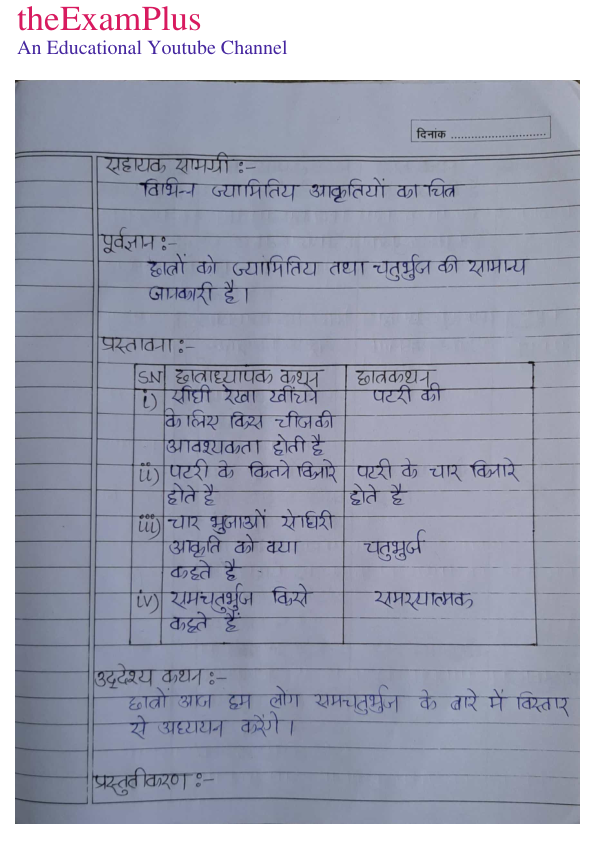 theExamPlus
An Educational Youtube Channel
दिनांक ................................
सहायक सामग्री :-
विभिन्न ज्यामितिय आकृतियों का चित्र
पूर्वज्ञान :-
छात्रों को ज्यामितिय तथा चतुर्भुज की सामान्य
जानकारी है।
प्रस्तावना :-
SN छात्राध्यापक कथन छात्रकथन
i) सीधी रेखा खींचने पटरी की
के लिए किस चीज की
आवश्यकता होती है
ii) पटरी के कितने किनारे पटरी के चार किनारे
होते है होते है
iii) चार भुजाओं से घिरी
आकृति को क्या चतुर्भुज
कहते है
iv) समचतुर्भुज किसे समस्यात्मक
कहते हैं
उद्देश्य कथन :-
छात्रों आज हम लोग समचतुर्भुज के बारे में विस्तार
से अध्ययन करेंगे।
प्रस्तुतीकरण :-